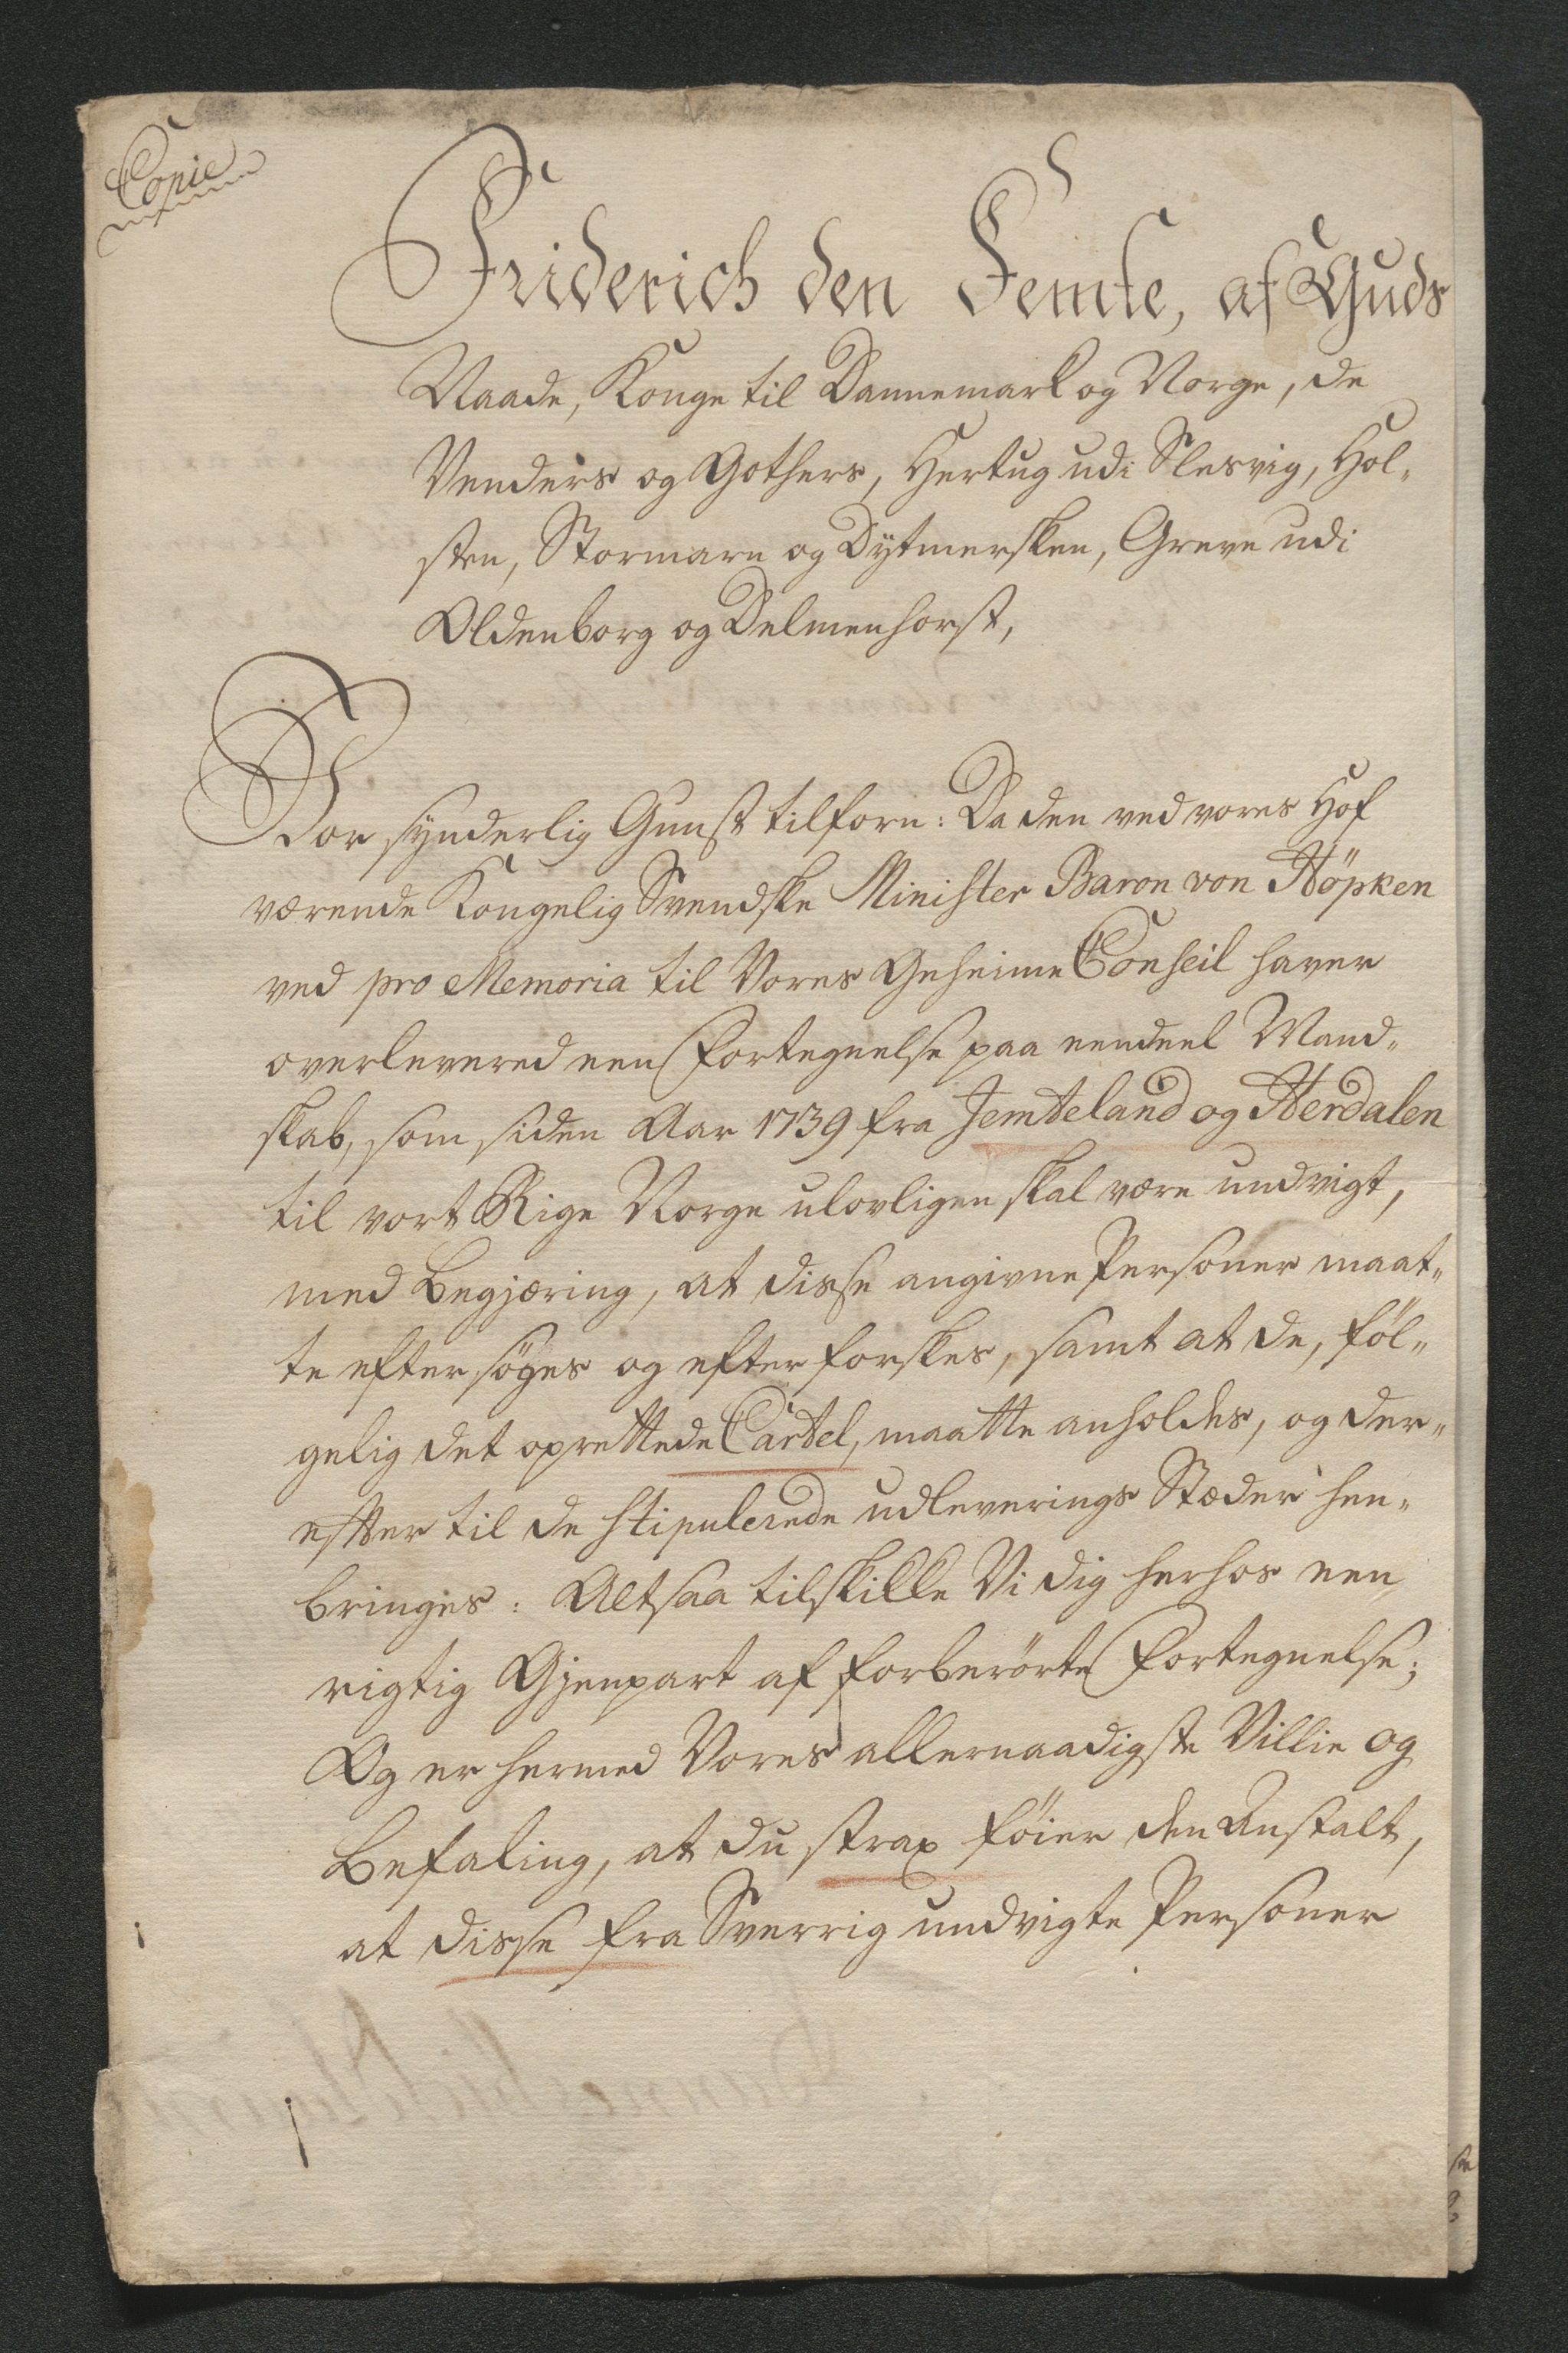 Copie
Friderich den Femte, af Guds
Naade, Konge til Dannemark og Norge, de
Venders og Gothers, Hertug udi Slesvig, Hol-
sten, Stormarn og Dytmersken, Greve udi
Oldenborg og Delmenhorst,
Vor synderlig Gunst tilforn: Da den ved vores Hof
værende Kongelig Svendske Minister Baron von Höpken
ved pro Memoria til Vores Geheime Conseil haver
overlevered een Fortegnelse paa eendeel Mand-
skab, som siden Aar 1739 fra Jemteland og Herdalen
til vort Rige Norge ulovligen skal være undvigt,
med Begjæring, at disse angivne Personer maat-
te eftersøges og efterforskes, samt at de, föl-
gelig det oprettede Cartel, maatte anholdes, og der-
efter til de stipulerede udleverings Stæder hen-
bringes: Altsaa tilskikke Vi dig herhos een
rigtig Gjenpart af forberörte Fortegnelse;
Og er hermed Vores allernaadigste Villie og
Befaling, at du strax föier den Anstalt,
at disse fra Sverrig undvigte Personer